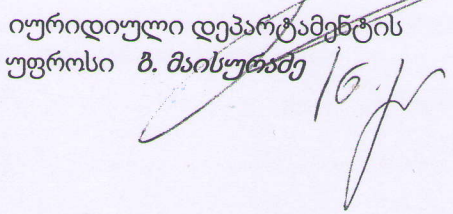 იურიდიული დეპარტამენტის
უფროსი გ. მაისურაძე